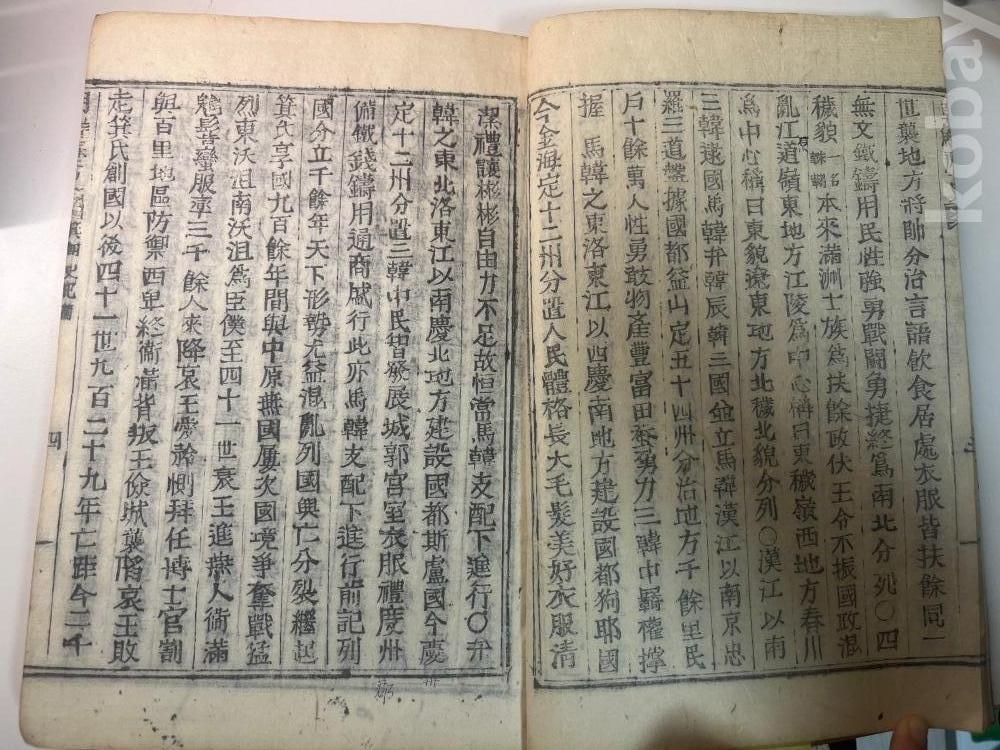 世襲地方將帥分治言語飮食居處衣服皆扶餘同一
無文鐵鑄用民性強男戰鬪勇捷終爲南北分列〇四
穢貊一名本來滿洲士族爲扶餘政伏王令不振國政混
亂江道嶺東地方江陵爲中心稱曰東穢嶺西地方春川
爲中心稱曰東貊遼東地方北穢北貊分列〇漢江以南
三韓建國馬韓弁韓辰韓三國並立馬韓漢江以南京忠
羅三道雄據國都益山定五十四州分治地方千餘里民
戶十餘萬人性勇敢物產豐富田蚕努力三韓中霸權撑
握 馬韓之東洛東江以西慶南地方建設國都狗耶國
今金海定十二州分置人民體格長大毛髮美好衣服淸
潔禮讓彬彬自由力不足故恒當馬韓支配下進行〇弁
韓之東北洛東江以南慶北地方建設國都斯盧國今慶
定十二州分置三韓中民智發展城郭宮室衣服禮度州
備鐵錢鑄用通商盛行此亦馬韓支配下進行前記列
國分立千餘年天下形勢尤益混亂列國興亡分裂繼起
箕氏享國九百餘年間與中原燕國屢次國境爭奪戰猛
列東沃沮南沃沮爲臣僕至四十一世哀王進燕人衛滿
魋髻蠻服率三千餘人來降哀王旁矜惻拜任博士官割
與百里地區防禦西卑終衛滿背叛王儉城襲擊哀王敗
走箕氏創國以後四十一世九百二十九年亡距今二千
四
kobay